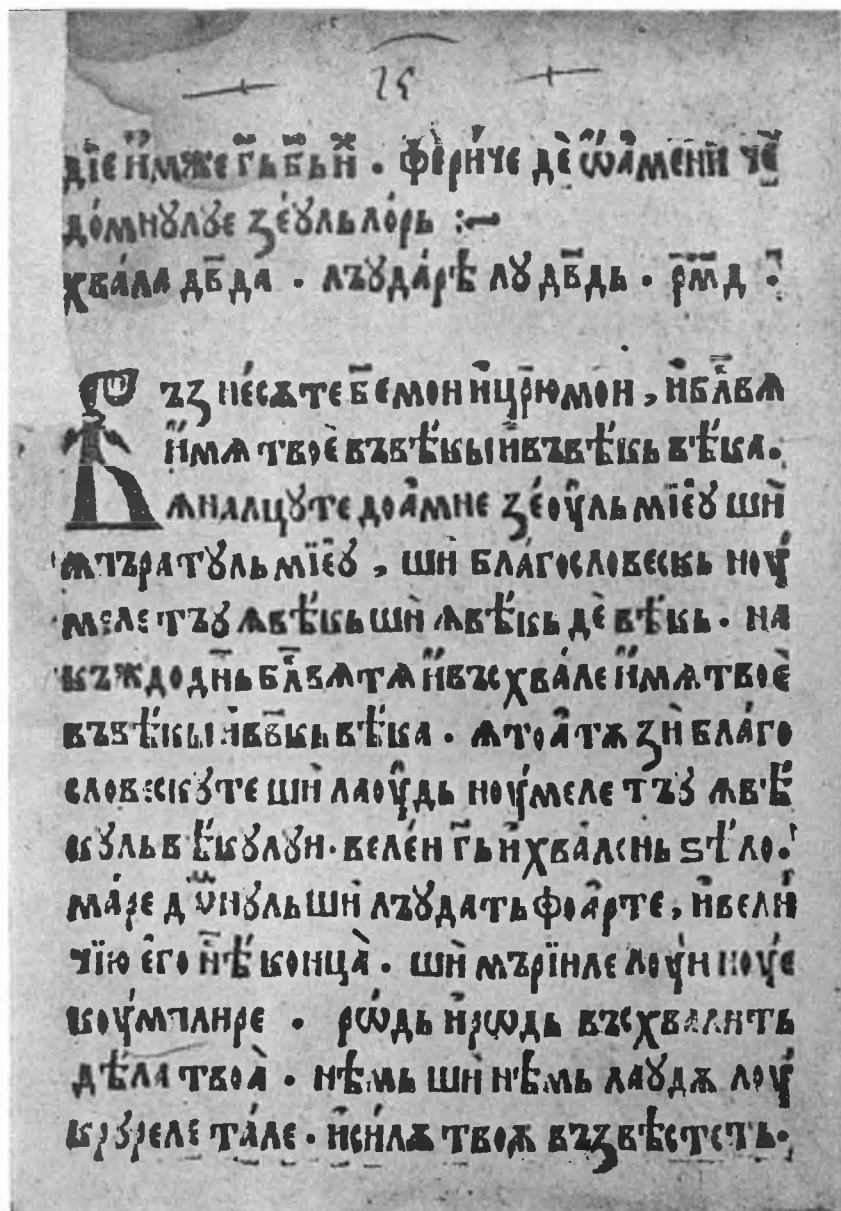 25
дїе и҆мже г҃ь б҃ь и҆х . фе́риче де ѡ҆а́мени че
до́мнꙋлꙋе зе́ꙋльло́рь :~
хва́ла дв҃да . лъꙋда́рѣ лꙋ дв҃дь . рм҃д .
Въз не́сѫте б҃е мои и҆ цр҃ю мои , и҆ бл҃вѧ
и҆мѧ твоѐ въ вѣ́кы и҆ въ вѣ́кь вѣ́ка .
ꙟналцꙋте доа҆мне зе́оу҆ль мїе́ꙋ ши
ꙟпъратꙋль мїе́ꙋ , ши бла́гословескь ноу́
меле тъꙋ ꙟ вѣ́кь ши ꙟ вѣ́кь де вѣ́кь . на
къждо дн҃ь бл҃вѧ тѧ и҆ въсхва́ле и҆мѧ твоѐ
въ вѣ́кы и҆ в вѣ́кь вѣ́ка . ꙟ тоа҆тѫ зи бла́го
словескꙋте ши лаоу́дь ноу́меле тъꙋ ꙟ вѣ́
кꙋль вѣ́кꙋлꙋи . веле́и г҃ь и҆ хва́лень ѕѣ́ло .
ма́ре дѡ҃нꙋль ши лъꙋдать фоа҆рте , и҆ вели́
чїю е҆го нѣ́ конца̀ . ши мърїиле лоу́и ноу́е
коу́мплире . рѡ́дь и҆ рѡдь въсхвалить
дѣ́ла твоа̀ . нѣ́мь ши нѣ́мь лаꙋдѫ лоу́
крꙋреле та́ле . и҆ си́лѫ твоѫ възвѣ́стеть .